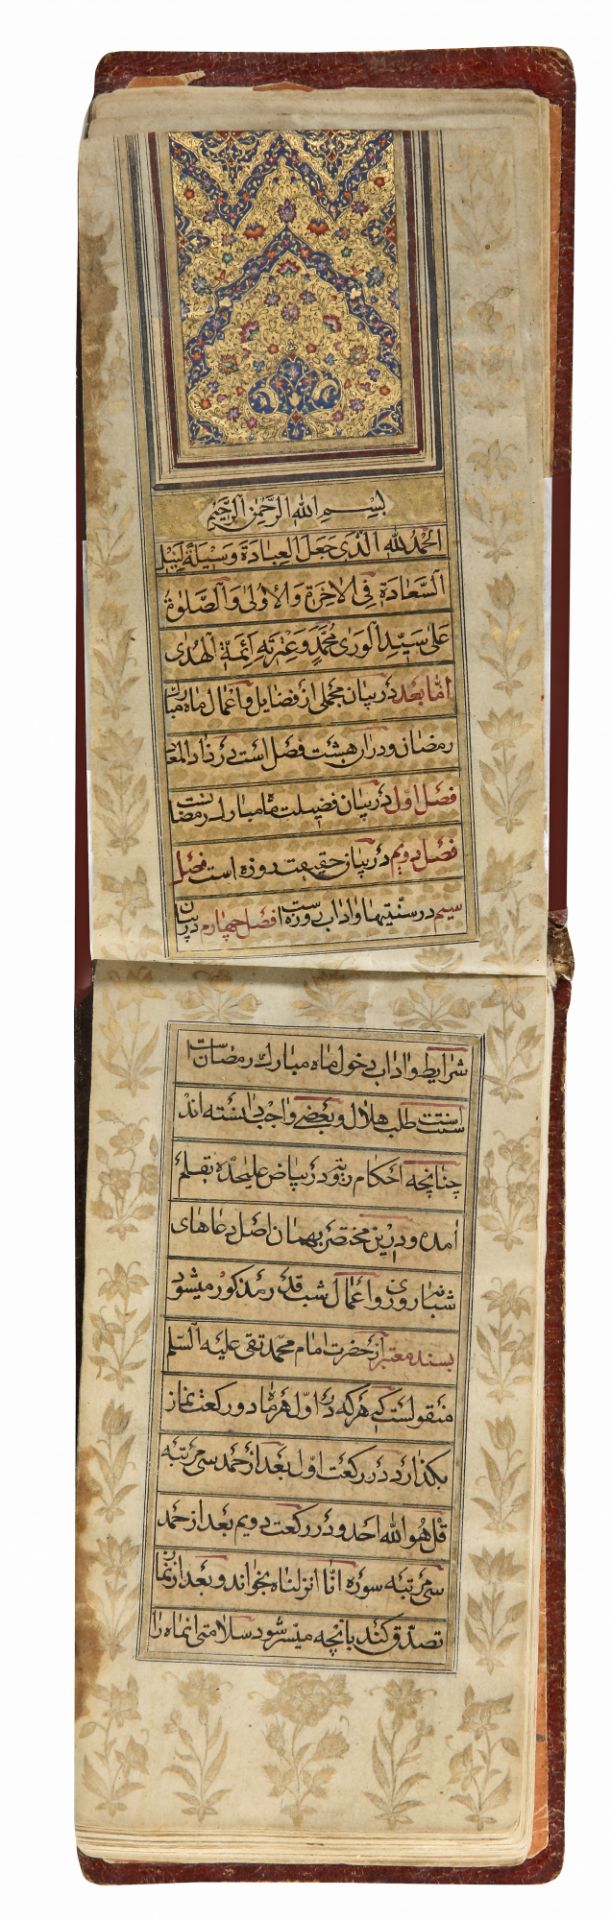 بسم الله الرحمن الرحیم
الحمد لله الذی جعل العبادة وسیلة لنیل
السعادة فی الاخرة والاولی والصلوة
علی سید الوری محمد وعترته ائمة الهدی
اما بعد در بیان مجملی از فضایل و اعمال ماه مبارک
رمضان و در ان هشت فصل است در زاد المعاد
فصل اول در بیان فضیلت ماه مبارک رمضانست
فصل دویم در بیان حقیقت روزه است فصل
سیم در سنتیها و اداب روزه است فصل چهارم در بیان
شرایط و اداب دخول ماه مبارک رمضان است
سنت است طلب هلال و بعضی واجب دانسته اند
چنانچه احکام رؤیت در بیاض علیحده بقلم
امده و درین مختصر بهمان اصل دعاهای
شبانروزی و اعمال شب قدر مذکور میشود
بسند معتبر از حضرت امام محمد تقی علیه السلم
منقولست که هرکه در اول هر ماه دو رکعت نماز
بکذارد در رکعت اول بعد از حمد سی مرتبه
قل هو الله احد و در رکعت دویم بعد از حمد
سی مرتبه سوره انا انزلناه بخواند و بعد از نماز
تصدق کند بانچه میسر شود سلامتی انماه را